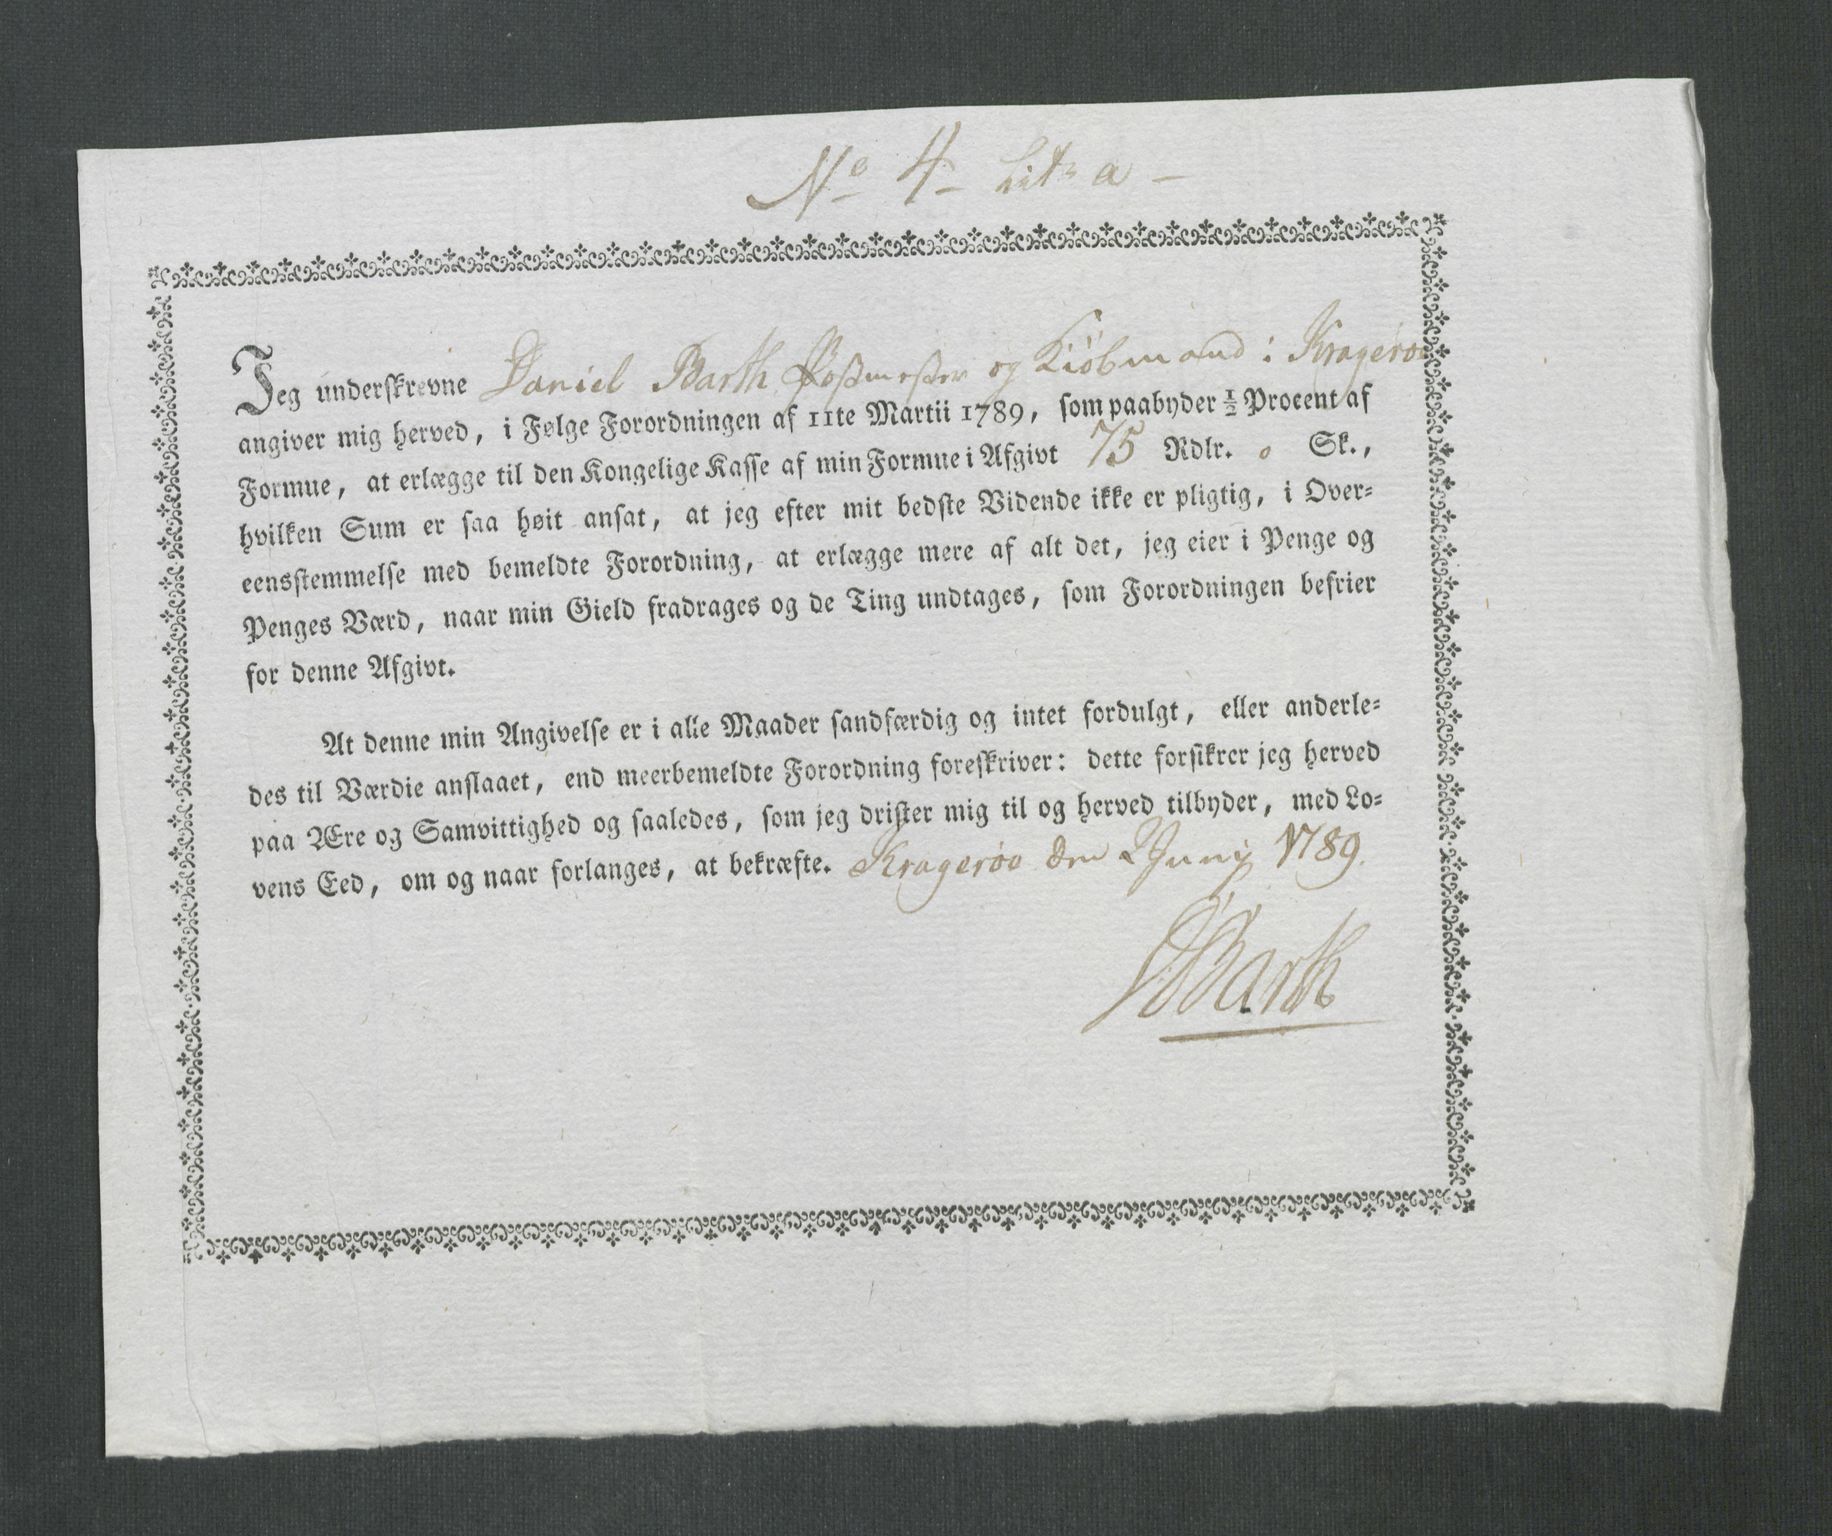 No 4 Lit. a
Jeg underskrevne Daniel Barth Postmester og Kiöbmand i Kragerøe
angiver mig herved, i Følge Forordningen af 11te Martii 1789, som paabyder ½ Procent af
Formue, at erlægge til den Kongelige Kasse af min Formue i Afgivt 75 Rdlr. o Sk.,
hvilken Sum er saa høit ansat, at jeg efter mit bedste Vidende ikke er pligtig, i Over-
eensstemmelse med bemeldte Forordning, at erlægge mere af alt det, jeg eier i Penge og
Penges Værd, naar min Gield fradrages og de Ting undtages, som Forordningen befrier
for denne Afgivt.
At denne min Angivelse er i alle Maader sandfærdig og intet fordulgt, eller anderle-
des til Værdie anslaaet, end meerbemeldte Forordning foreskriver: dette forsikrer jeg herved
paa Ære og Samvittighed og saaledes, som jeg drister mig til og herved tilbyder, med Lo-
vens Eed, om og naar forlanges, at bekræfte. Kragerøe den Juny 1789.
DBarth